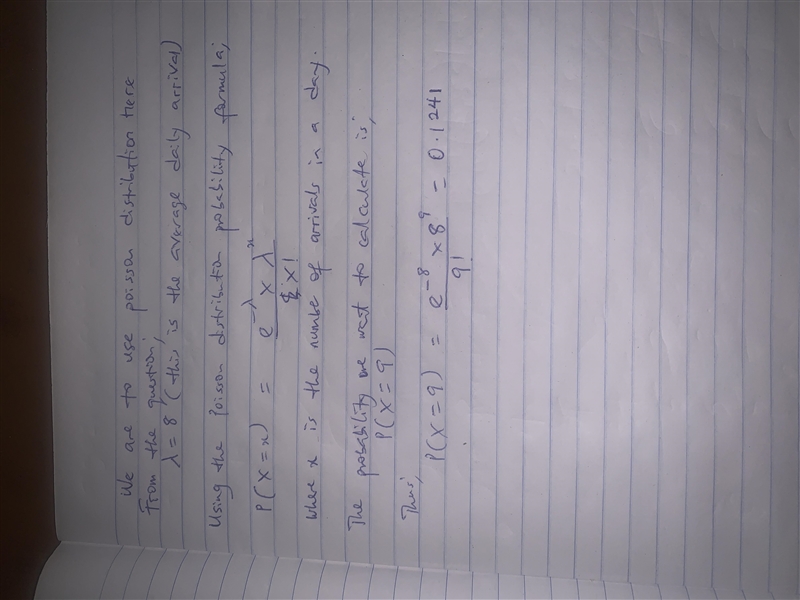 We are to use poisson distribution here
From the question;
λ = 8 (this is the average daily arrival)
Using the Poisson distribution probability formula;
P(X = x) = e^-λ × λ^x / x!
where x is the number of arrivals in a day.
The probability we want to calculate is;
P(X = 9)
Thus;
P(X = 9) = e^-8 × 8^9 / 9! = 0.1241